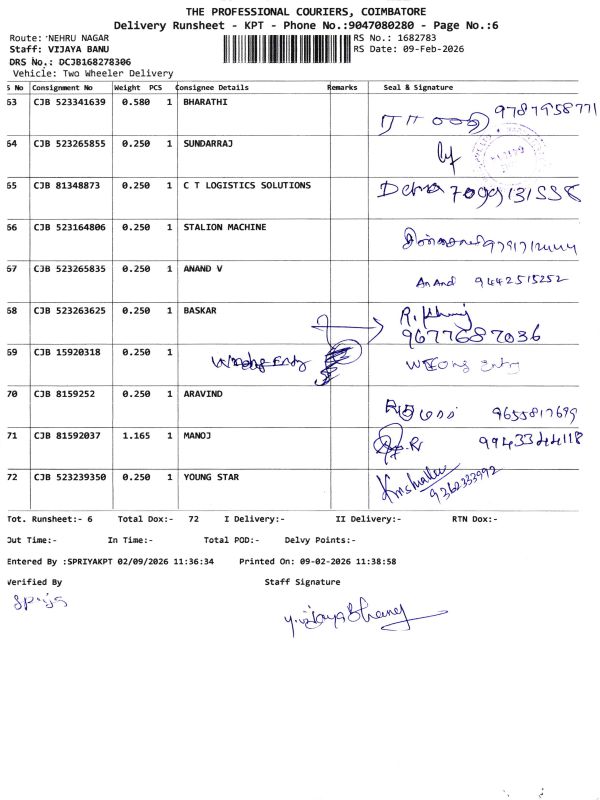 THE PROFESSIONAL COURIERS, COIMBATORE
Delivery Runsheet - KPT - Phone No.:9047080280 - Page No.:6
Route: NEHRU NAGAR
RS No.: 1682783
Staff: VIJAYA BANU
RS Date: 09-Feb-2026
DRS No.: DCJB168278306
Vehicle: Two Wheeler Delivery
S No Consignment No Weight PCS Consignee Details Remarks Seal & Signature
63 CJB 523341639 0.580 1 BHARATHI 9787958771
64 CJB 523265855 0.250 1 SUNDARRAJ
65 CJB 81348873 0.250 1 C T LOGISTICS SOLUTIONS
66 CJB 523164806 0.250 1 STALION MACHINE
67 CJB 523265835 0.250 1 ANAND V Anand 9442515252
68 CJB 523263625 0.250 1 BASKAR 9677687036
69 CJB 15920318 0.250 1 Wrong Entry
70 CJB 8159252 0.250 1 ARAVIND 9655817699
71 CJB 81592037 1.165 1 MANOJ 9943344118
72 CJB 523239350 0.250 1 YOUNG STAR 9362333992
Tot. Runsheet:- 6 Total Dox:- 72 I Delivery:- II Delivery:- RTN Dox:-
Out Time:- In Time:- Total POD:- Delvy Points:-
Entered By :SPRIYAKPT 02/09/2026 11:36:34 Printed On: 09-02-2026 11:38:58
Verified By Staff Signature